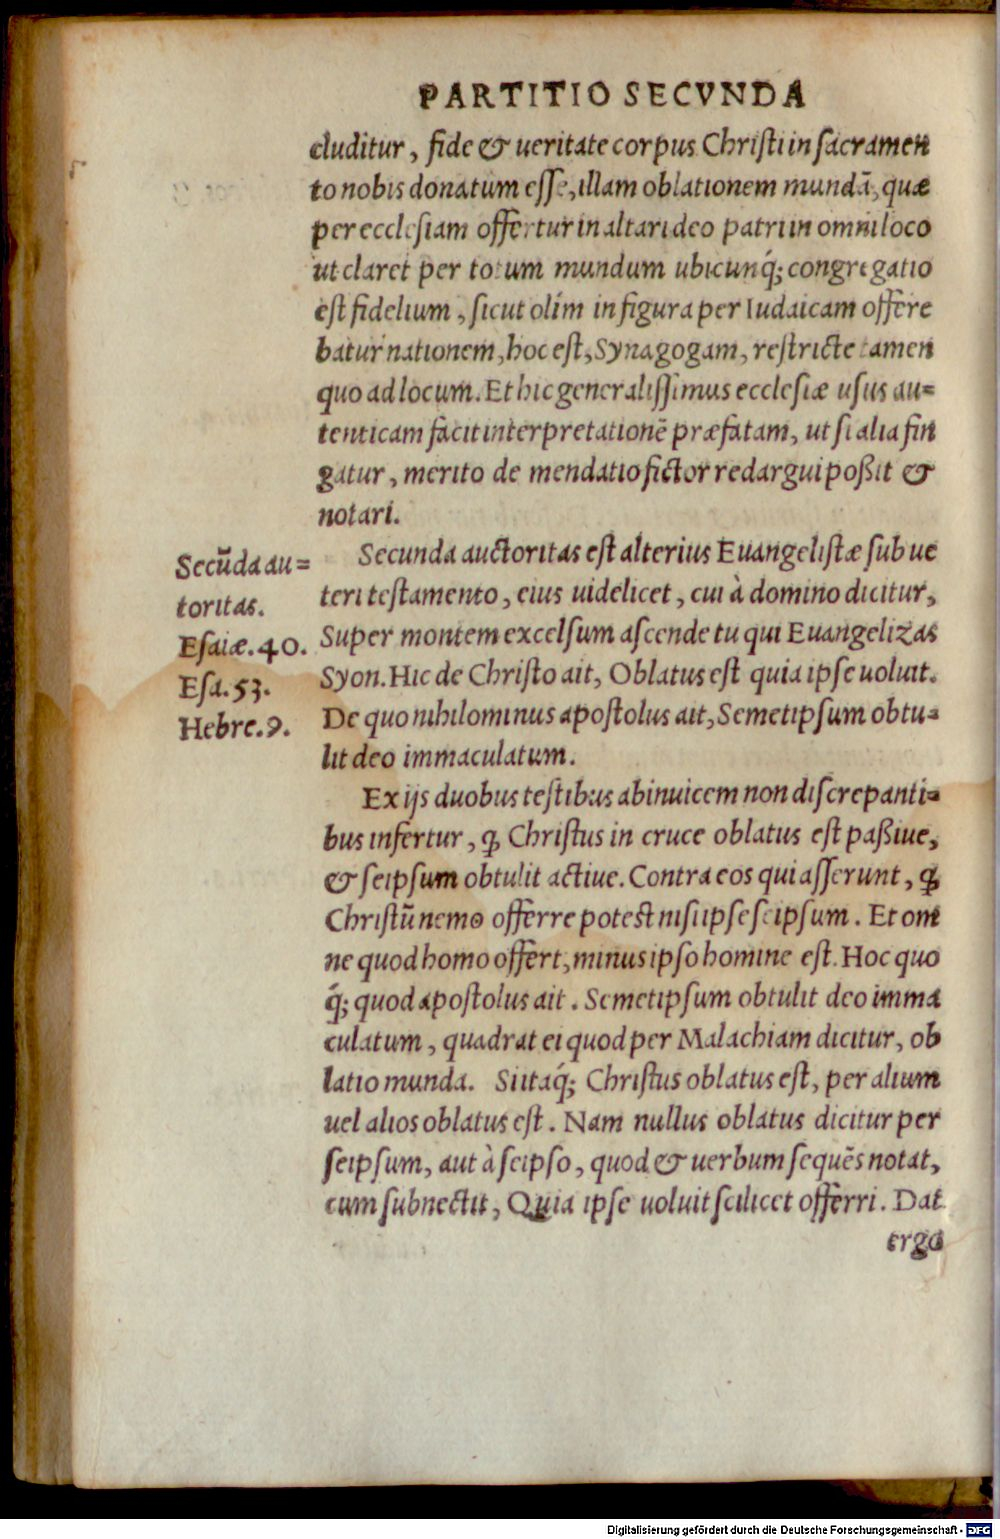 PARTITIO SECVNDA
cluditur, fide & ueritate corpus Christi in sacramen
to nobis donatum esse, illam oblationem mundā, quæ
per ecclesiam offertur in altari deo patri in omni loco
ut claret per totum mundum ubicunq́; congregatio
est fidelium, sicut olím in figura per Iudaicam offere
batur nationem, hoc est, Synagogam, restricte tamen
quo ad locum. Et hic generalissimus ecclesiæ usus au=
tenticam facit interpretationē præfatam, ut si alia fin
gatur, merito de mendatio fictor redargui poßit &
notari.
Secūda au=
toritas.
Esaiæ. 40.
Esa. 53.
Hebre. 9.
Secunda auctoritas est alterius Euangelistæ sub ue
teri testamento, eius uidelicet, cui à domino dicitur,
Super montem excelsum ascende tu qui Euangelizas
Syon. Hic de Christo ait, Oblatus est quia ipse uoluit.
De quo nihilominus apostolus ait, Semetipsum obtu=
lit deo immaculatum.
Ex ijs duobus testibus abinuicem non discrepanti=
bus infertur, ꝙ Christus in cruce oblatus est paßiue,
& seipsum obtulit actiue. Contra eos qui asserunt, ꝙ
Christū nemo offerre potest nisi ipse seipsum. Et om
ne quod homo offert, minus ipso homine est. Hoc quo
q́; quod apostolus ait. Semetipsum obtulit deo imma
culatum, quadrat ei quod per Malachiam dicitur, ob
latio munda. Si itaq́; Christus oblatus est, per alium
uel alios oblatus est. Nam nullus oblatus dicitur per
seipsum, aut à seipso, quod & uerbum sequēs notat,
cum subnectit, Quia ipse uoluit scilicet offerri. Dat
ergo
Digitalisierung gefördert durch die Deutsche Forschungsgemeinschaft - DFG